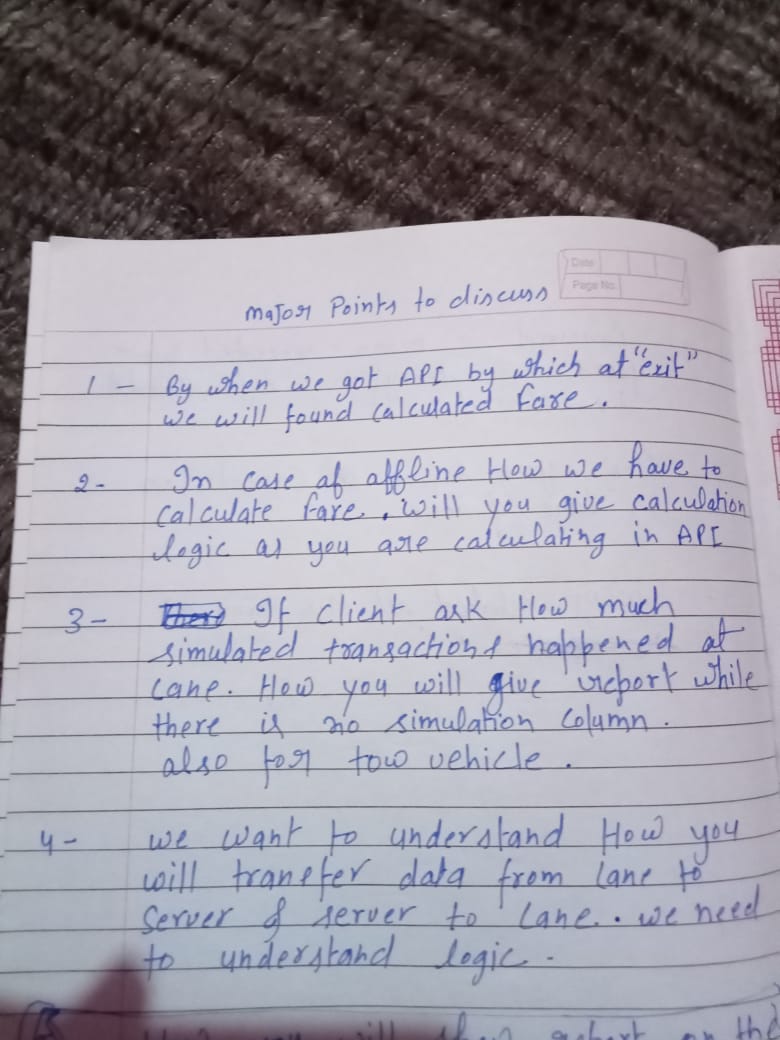 Date
Page No.
Major Points to discuss
1 - By when we got API by which at "exit"
we will found calculated fare.
2- In case of offline How we have to
calculate fare. will you give calculation
logic as you are calculating in API
3- If client ask How much
simulated transactions happened at
lane. How you will give report while
there is no simulation column.
also for tow vehicle.
4- we want to understand How you
will transfer data from lane to
server & server to lane.. we need
to understand logic.
will report on the